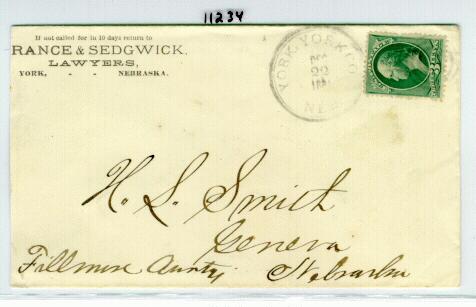 11234
If not called for in 10 days return to
RANCE & SEDGWICK,
LAWYERS,
YORK, - - NEBRASKA.
YORK, YORK CO.
DEC
22
NEB.
H. S. Smith
Geneva
Fillmore County, Nebraska